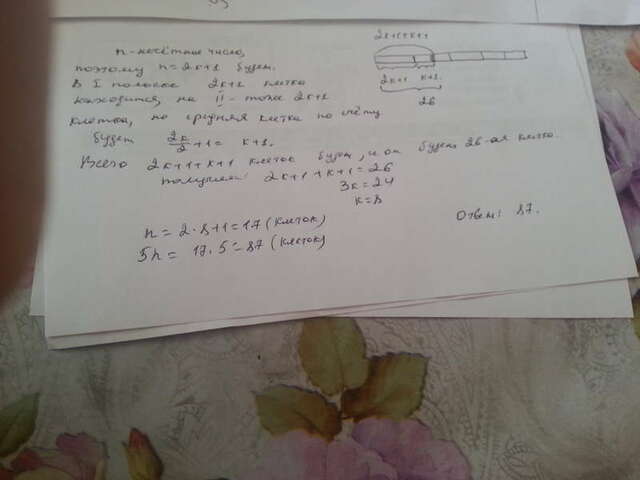 n - нечётные число,
поэтому n = 2к+1 будем.
В I полоске 2к+1 клетка
находится, на II - тоже 2к+1
клетка, но средняя клетка по счёту
будет 2к/2 + 1 = к+1.
Всего 2к+1+к+1 клеток будет, и он будет 26-ая клетка.
получаем: 2к+1+к+1 = 26
3к = 24
к = 8
n = 2·8+1 = 17 (клеток)
5n = 17·5 = 87 (клеток)
Ответ: 87.
2к+1+к+1
2к+1 к+1
26